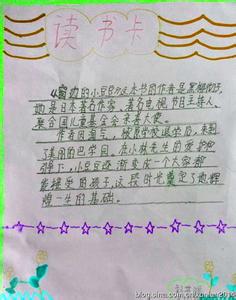 读书卡
《窗边的小豆豆》这本书的作者是黑柳彻子,
她是日本著名作家、著名电视节目主持人、
联合国儿童基金会亲善大使。
作者因淘气,被原学校退学后,来到
了巴学园,在小林先生的爱护和
引导下,小豆豆逐渐变成一个大家都
能接受的孩子,这段时光奠定了她辉
煌一生的基础。